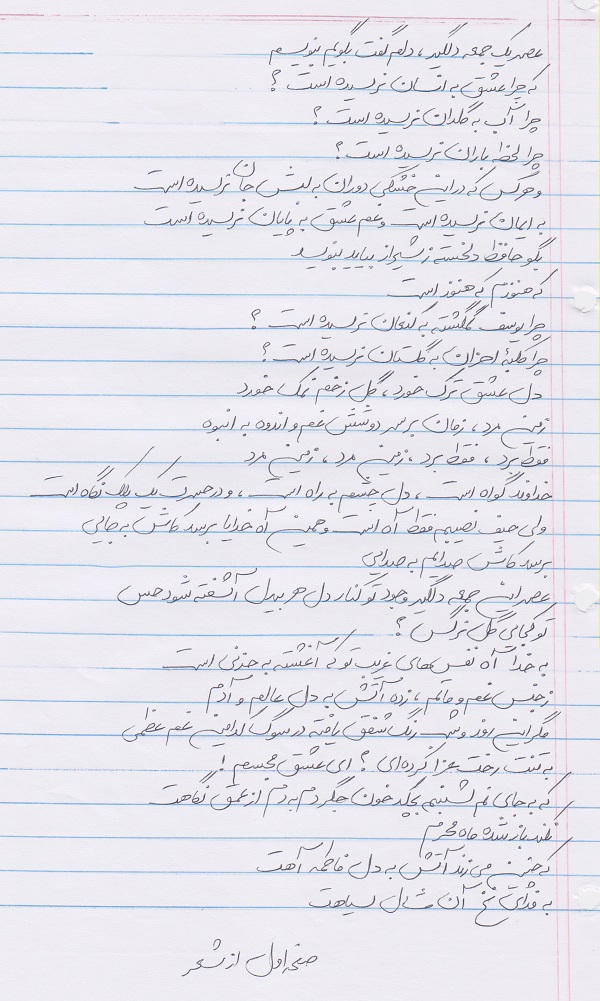 عصر یک جمعه دلگیر، دلم گفت بگویم بنویسم
که چرا عشق به انسان نرسیده است؟
چرا آب به گلدان نرسیده است؟
چرا لحظه باران نرسیده است؟
و هر کس که در این خشکی دوران به لبش جان نرسیده است
به ایمان نرسیده است و غم عشق به پایان نرسیده است
بگو حافظ دلخسته ز شیراز بیاید بنویسد
که هنوزم که هنوز است
چرا یوسف گمگشته به کنعان نرسیده است؟
چرا کلبه احزان به گلستان نرسیده است؟
دل عشق ترک خورد، گل زخم نمک خورد
زمین مرد، زمان بر سر دوشش غم و اندوه به انبوه
فقط برد، فقط برد، زمین مرد، زمین مرد
خداوند گواه است، دلم چشم به راه است، و در حسرت یک پلک نگاه است
ولی حیف نصیبم فقط آه است و همین آه خدایا برسد کاش به جایی
برسد کاش صدایم به صدایی
عصر این جمعه دلگیر وجود تو کنار دل هر بیدل آشفته شود حس
تو کجایی گل نرگس؟
به خدا آه نفس‌های غریب تو که آغشته به حزنی است
ز جنس غم و ماتم، زده آتش به دل عالم و آدم
مگر این روز و شب رنگ شفق یافته در سوگ کدامین غم عظمی
به تنت رخت عزا کرده‌ای؟ ای عشق مجسم!
که به جای نم شبنم بچکد خون جگر دم به دم از عمق نگاهت
نکند باز شده ماه محرم
که چنین می‌زند آتش به دل فاطمه آهت
به فدای نخ آن شال سیاهت
صفحه اول از شعر